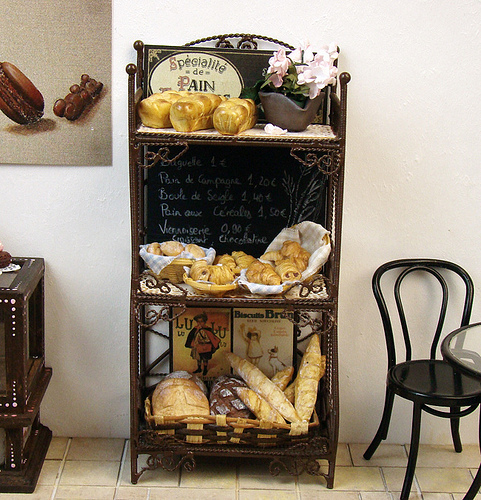 Spécialité
de
PAIN
Baguette 1 €
Pain de Campagne 1,20 €
Boule de Seigle 1,40 €
Pain aux Céréales 1,50 €
Viennoiserie 0,90 €
Croissant, Chocolatine
LU LU
Biscuits